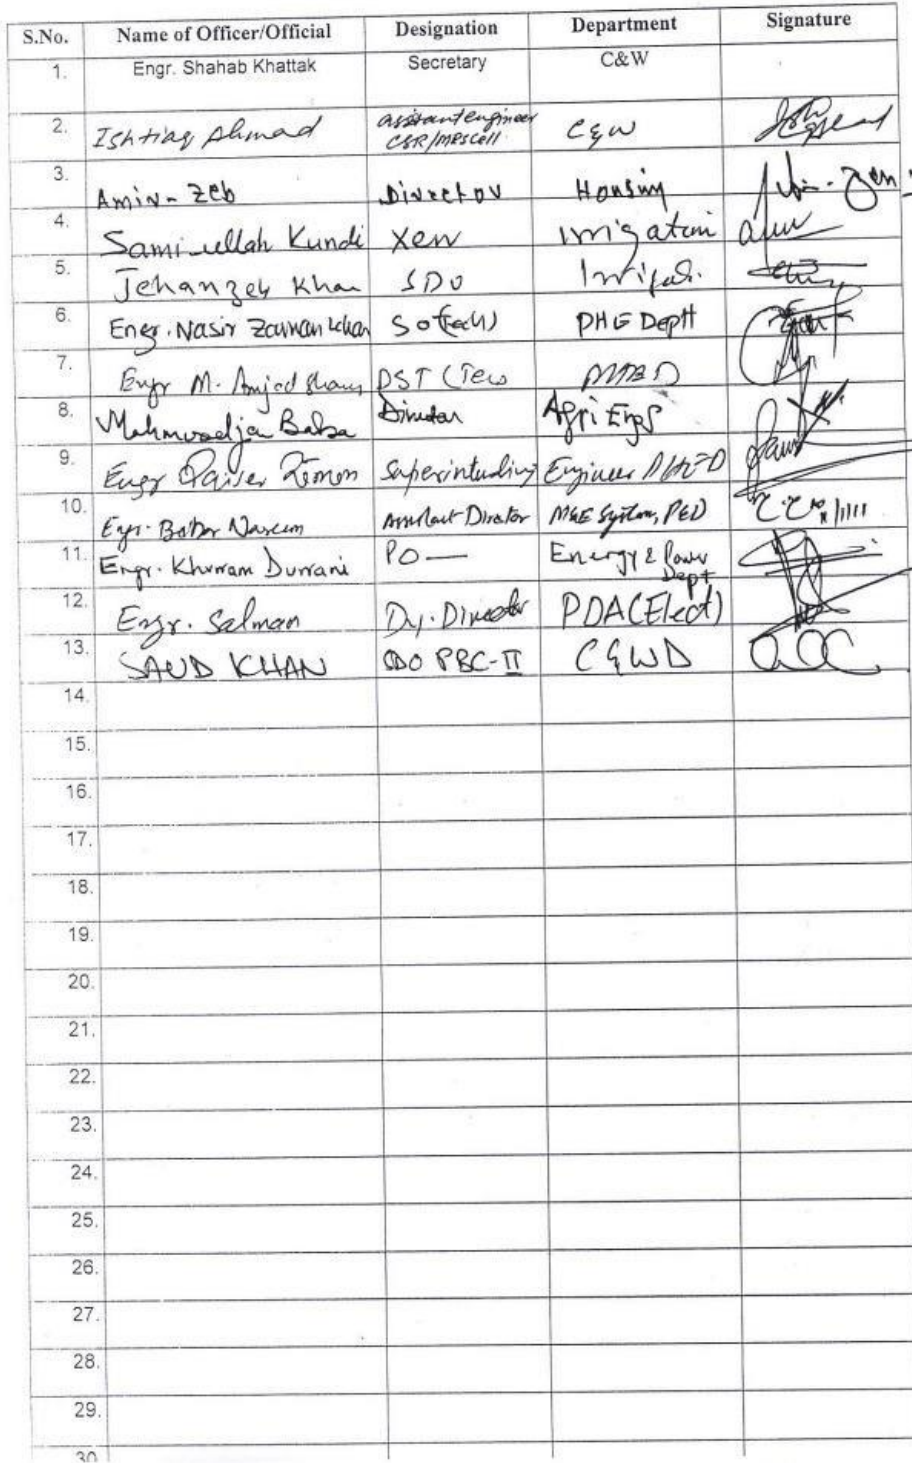 S.No. Name of Officer/Official Designation Department Signature
1. Engr. Shahab Khattak Secretary C&W
2. Ishtiaq Ahmad assistant engineer CSR/MRS Cell C&W
3. Amir-Zeb Director Housing
4. Sami-ullah Kundi Xen Irrigation
5. Jehanzeb Khan SDO
6. Engr. Nasir Zaman Khan SO (Tech) PHE Deptt
7. Engr M. Amjad
8. Baba Director Agri Engg
9. Engr Superintending Engineer
10. Engr. Babar Naseem Assistant Director M&E System, P&D
11. Engr. Khurram Durrani PO — Energy & Power Dept
12. Engr. Salman Dy. Director PDA (Elect)
13. SAUD KHAN PBC-II C&WD
14.
15.
16.
17.
18.
19.
20.
21.
22.
23.
24.
25.
26.
27.
28.
29.
30